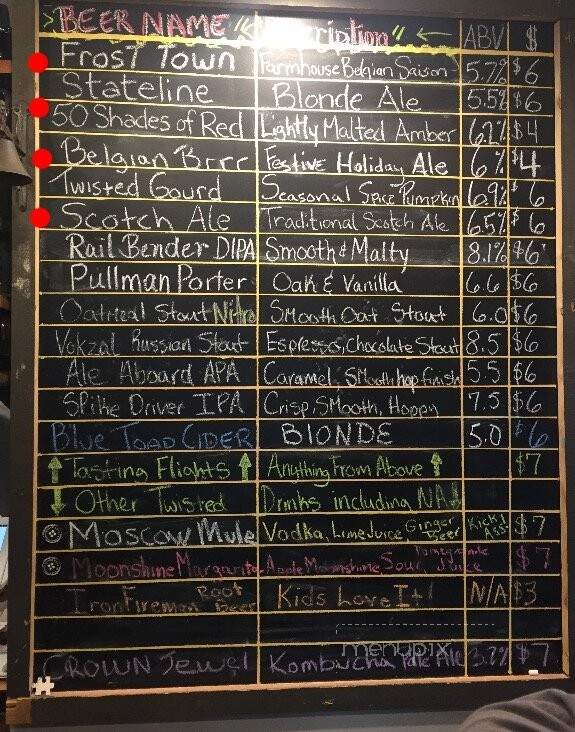 > BEER NAME " "Description" ← ABV $
Frost Town Farmhouse Belgian Saison 5.7% $6
Stateline Blonde Ale 5.5% $6
50 Shades of Red Lightly Malted Amber 6.2% $4
Belgian Brrr Festive Holiday Ale 6% $4
Twisted Gourd Seasonal Spice Pumpkin 6.9% $6
Scotch Ale Traditional Scotch Ale 6.5% $6
Rail Bender DIPA Smooth & Malty 8.1% $6
Pullman Porter Oak & Vanilla 6.6 $6
Oatmeal Stout Nitro Smooth Oat Stout 6.0 $6
Vokzal Russian Stout Espresso, Chocolate Stout 8.5 $6
Ale Aboard APA Caramel, Smooth hop finish 5.5 $6
Spike Driver IPA Crisp, Smooth, Hoppy 7.5 $6
BLUE TOAD CIDER BLONDE 5.0 $6
↑ Tasting Flights ↑ Anything From Above ↑ $7
↓ Other Twisted Drinks including NA ↓
Moscow Mule Vodka, Lime Juice, Ginger Beer Kick Ass! $7
Moonshine Margarita Apple Moonshine Sour, Pomegranate Juice $7
Iron Fireman Root Beer Kids Love It! N/A $3
menupix
CROWN JEWEL Kombucha Pale Ale 3.7% $7
#